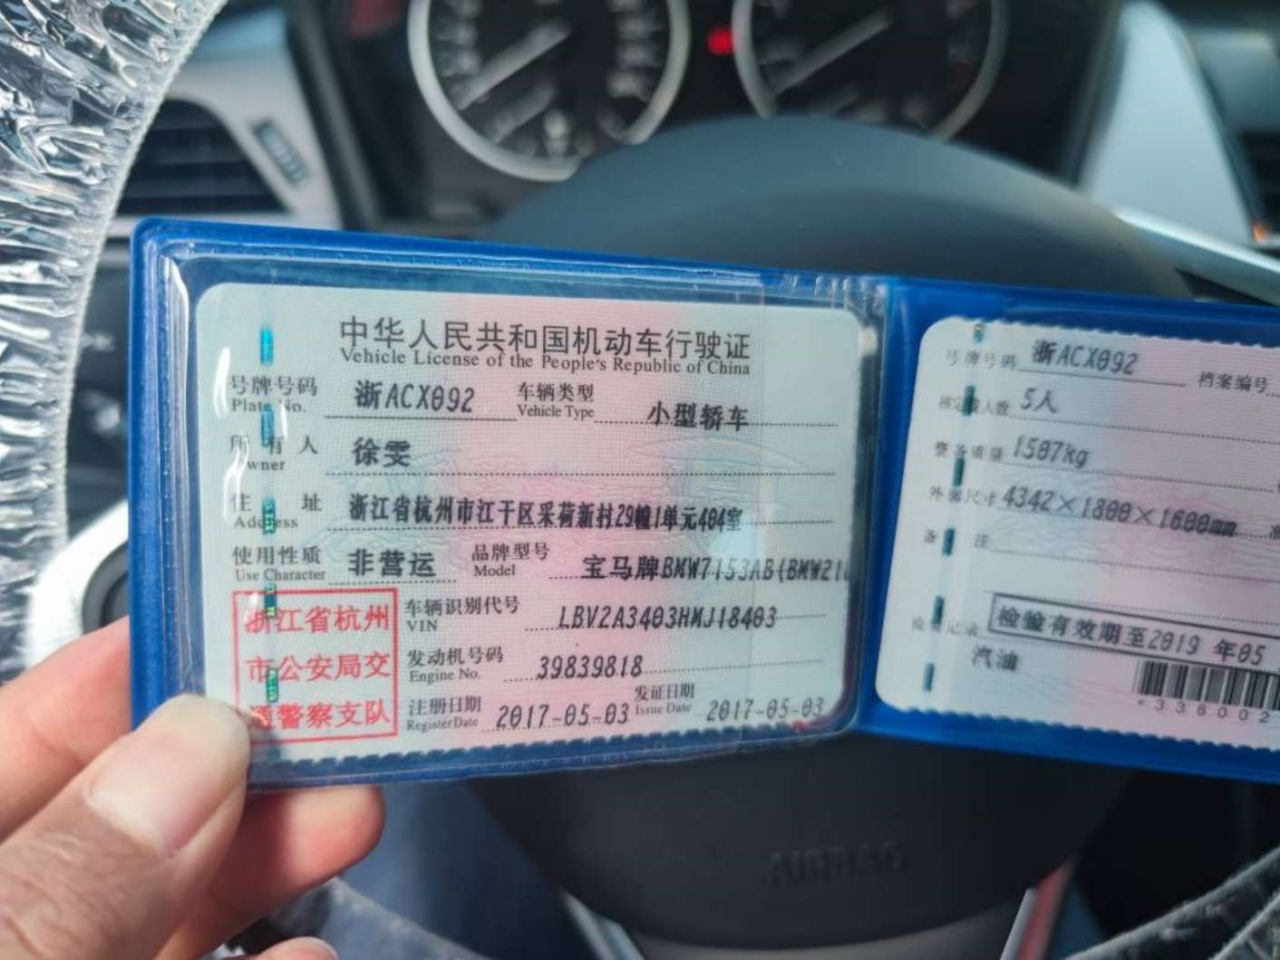 中华人民共和国机动车行驶证
Vehicle License of the People's Republic of China
号牌号码 浙ACX092 车辆类型 小型轿车
Plate No. Vehicle Type
所有人 徐雯
Owner
住址 浙江省杭州市江干区采荷新村29幢1单元404室
Address
使用性质 非营运 品牌型号 宝马牌BMW7153AB(BMW21
Use Character Model
车辆识别代号 LBV2A3403HMJ18403
VIN
发动机号码 39839818
Engine No.
注册日期 2017-05-03 发证日期 2017-05-03
Register Date Issue Date
浙江省杭州
市公安局交
通警察支队
号牌号码 浙ACX092 档案编号
核定载人数 5人
整备质量 1507kg
外廓尺寸 4342×1800×1600mm
备注
检验记录 检验有效期至2019 年05
汽油
*336002
AIRBAG